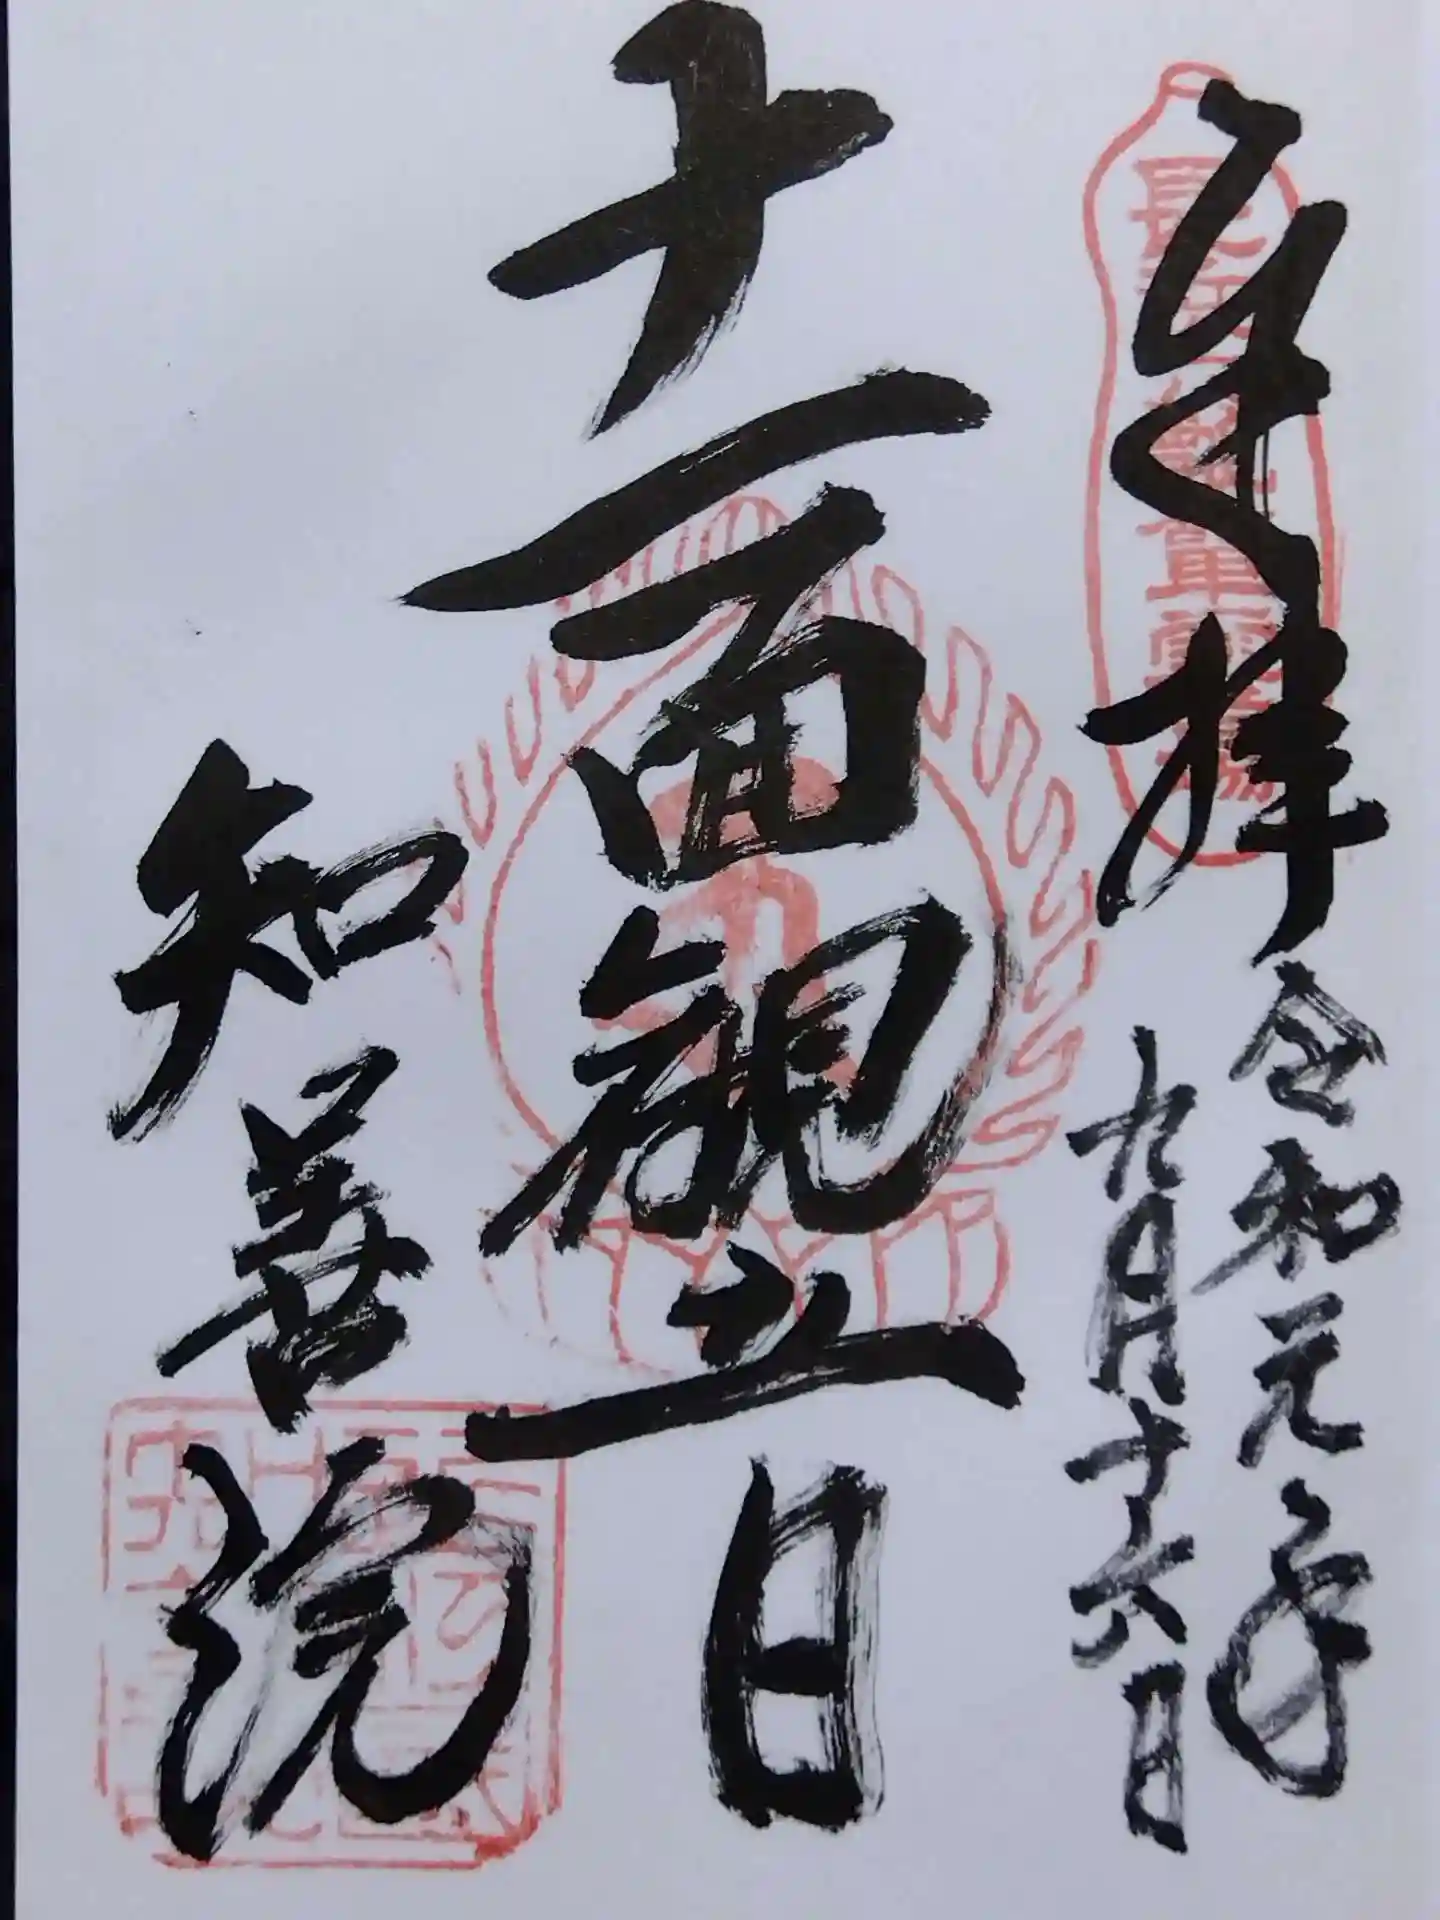 奉拝
令和元年
九月十六日
十一面観立日
知善院